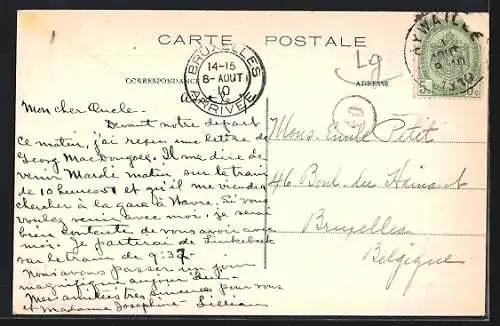 CARTE POSTALE
CORRESPONDANCE
ADRESSE
BRUXELLES
14-15
8-AOUT
10
ARRIVÉE
AYWAILLE
1910
5c 5c
Lg
Mon cher Oncle -
Devant notre départ
ce matin, j'ai reçu une lettre de
Georg MacDougal. Il me dire de
venir Mardi matin, sur le train
de 10 heures et qu'il me viendra
chercher à la gare à Wavre. Si vous
voulez venir avec moi, je serai
bien contente de vous avoir avec
moi. Je parterai de Linkebeek
sur le train de 9:37.
Nous avons passer un jour
magnifique aujour'hui.
Mes amitiées très sincères pour vous
et Madame Josephine - Lillian
Mons. Emile Petit
46 Boul. du Hainaut
Bruxelles
Belgique